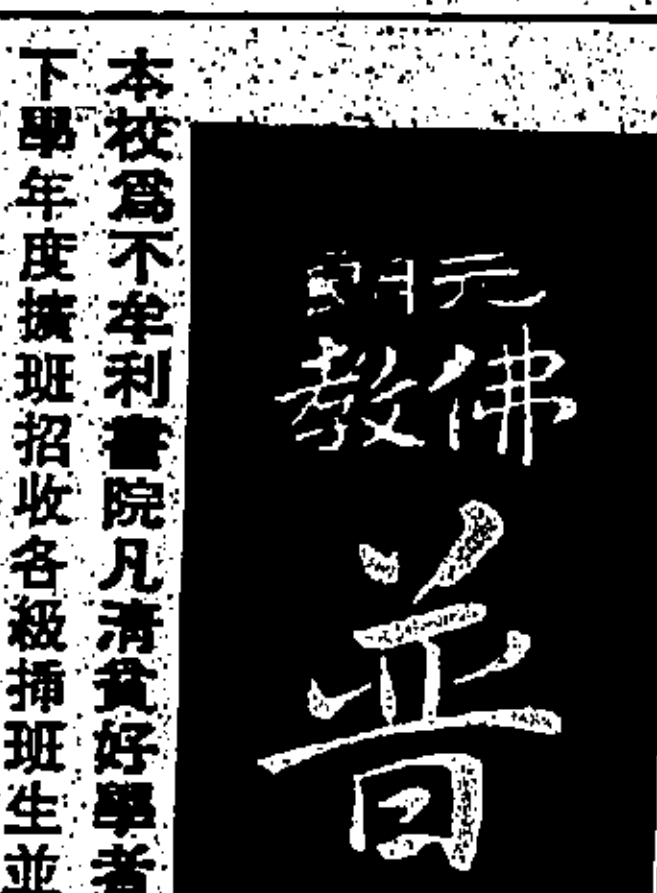 元朗
佛教
普
本校爲不牟利書院凡清貧好學者
下學年度擴班招收各級插班生並